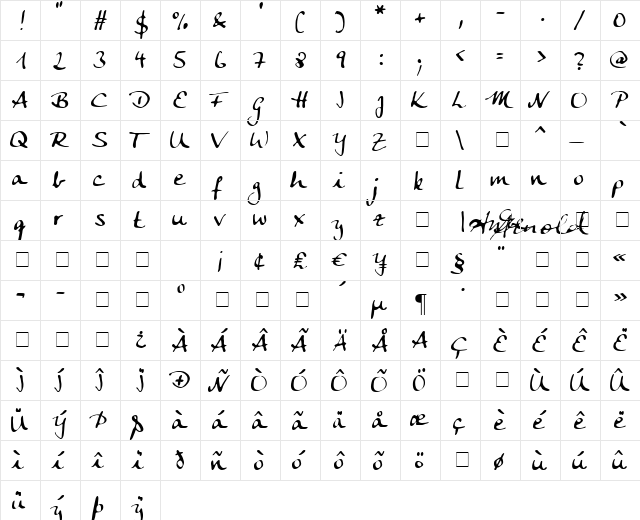 ! " # $ % & ' ( ) * + , - . / 0
1 2 3 4 5 6 7 8 9 : ; < = > ? @
A B C D E F G H I J K L M N O P
Q R S T U V W X Y Z □ \ □ ^ _ `
a b c d e f g h i j k l m n o p
q r s t u v w x y z □ | Arnold □ □
□ □ □ □ ¡ ¢ £ € ¥ □ § ¨ □ □ «
¬ - □ □ ° □ □ □ ´ µ ¶ · □ □ □ »
□ □ □ ¿ À Á Â Ã Ä Å A Ç È É Ê Ë
Ì Í Î Ï Ð Ñ Ò Ó Ô Õ Ö □ □ Ù Ú Û
Ü Ý Þ ß à á â ã ä å æ ç è é ê ë
ì í î ï ð ñ ò ó ô õ ö □ ø ù ú û
ü ý þ ÿ